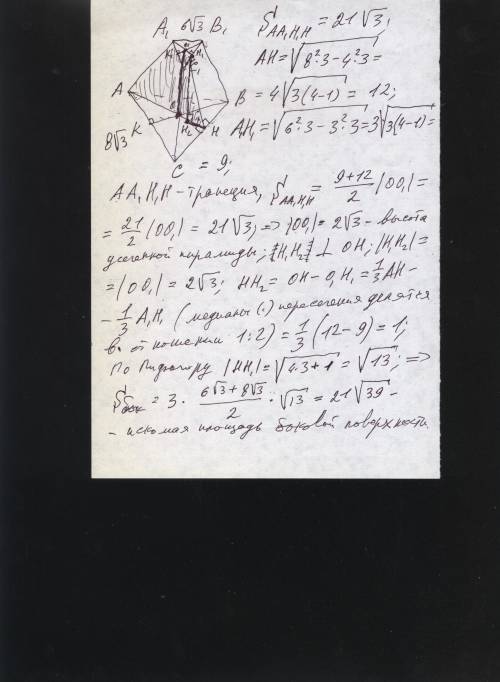 A₁ 6√3 B₁
S AA₁H₁H = 21√3;
AH = √(8²·3 − 4²·3) =
= 4√(3(4−1)) = 12;
A₁H₁ = √(6²·3 − 3²·3) = 3√(3(4−1)) =
= 9;
A
B
8√3 K
H₂ H
C
AA₁H₁H – трапеция, S AA₁H₁H = (9+12)/2 |OO₁| =
= 21/2 |OO₁| = 21√3; => |OO₁| = 2√3 – высота
усеченной пирамиды; [H₁H₂] ⊥ OH; |H₁H₂| =
= |OO₁| = 2√3; HH₂ = OH − O₁H₁ = 1/3 AH −
− 1/3 A₁H₁ (медианы (·) пересечения делятся
в отношении 1:2) = 1/3 (12 − 9) = 1;
По Пифагору |HH₁| = √(4·3 + 1) = √13; =>
S бок = 3 · (6√3 + 8√3)/2 · √13 = 21√39 –
– искомая площадь боковой поверхности.